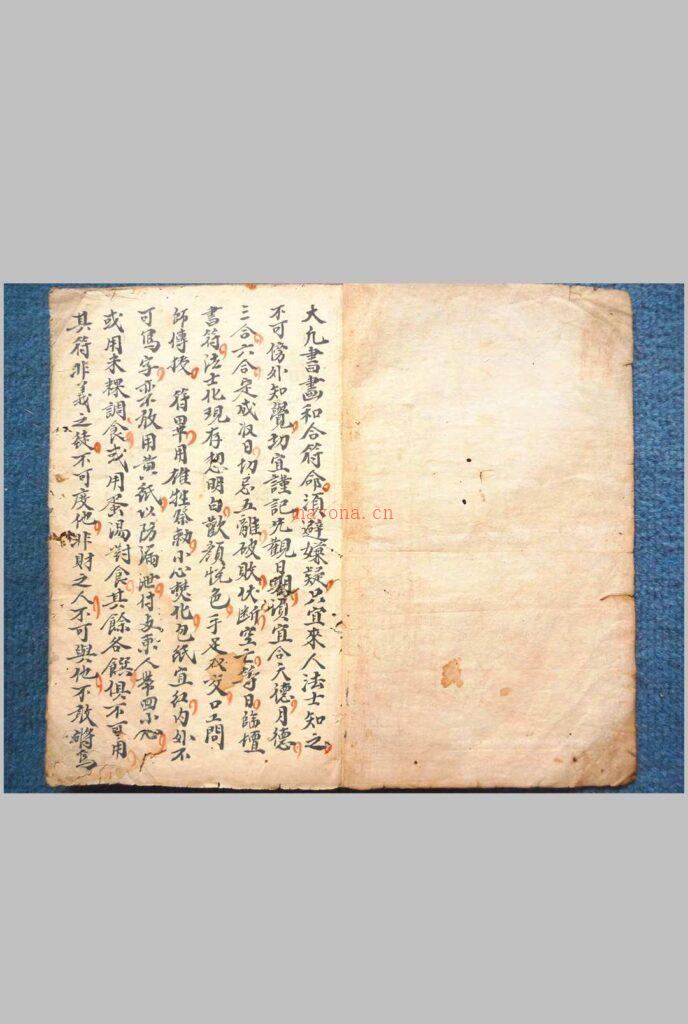 大凢書畵和合符命須避嫌疑只宜來人法士知之
不可傍外知覺切宜謹記先觀日 須宜合天德月德
三合六合定成收日切忌五離破敗伏斷空亡等日臨壇
書符法士化現存想明白歡顔悦色手足 交口工問
師傳授符畢用雄牲 勅小心焚化包紙宜紅内外不
可寫字亦不敢用黄紙以防漏泄付与東人帶回小心
或用未粿調食或用蛋湯對食其餘各饌俱不可用
其符非義之徒不可度他非財之人不可與他不敢
nayona.cn